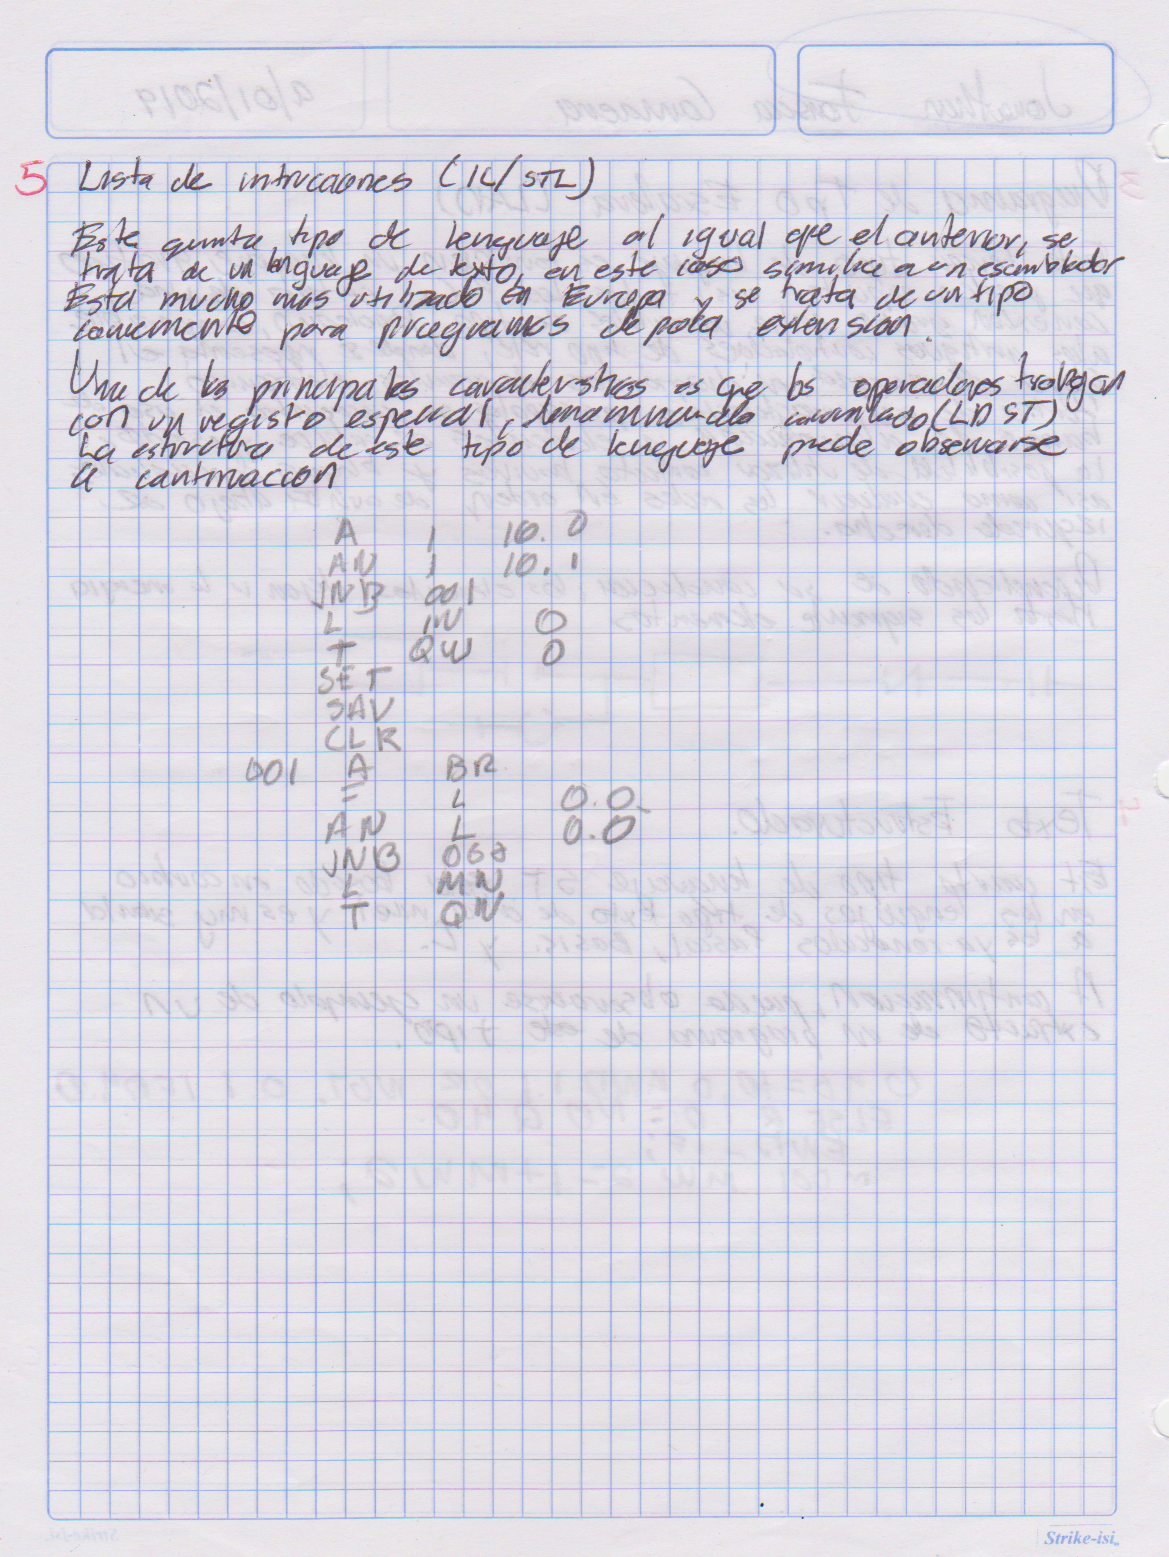 5 Lista de intrucciones (IL/STL)
Este quinta tipo de lenguaje al igual que el anterior, se
trata de un lenguaje de texto, en este caso similar a un ensamblador
Esta mucho mas utilizado en Europa y se trata de un tipo
conveniente para programas de poca extensión.
Una de las principales caracteristicas es que los operadores trabajan
con un registo especial, denaminado acumulado (LD ST)
La estructura de este tipo de lenguaje puede observarse
a cantinuacion
A 1 10.0
AN 1 10.1
JNB 001
L IW 0
T QW 0
SET
SAV
CLR
001 A BR
= L 0.0
AN L 0.0
JNB
L MN
T QN
Strike-isi